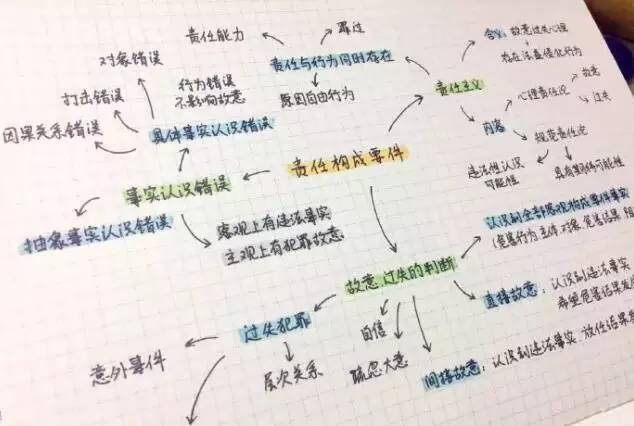 责任能力
罪过
含义:故意过失心理
存在法益侵犯行为
对象错误
责任与行为同时存在
行为错误
不影响故意
责任主义
故意
打击错误
原因自由行为
心理责任论
过失
因果关系错误
具体事实认识错误
内容
规范责任论
责任构成要件
违法性认识
可能性
具有期待可能性
事实认识错误
抽象事实认识错误
客观上有违法事实
主观上有犯罪故意
认识到全部客观构成要件事实
(危害行为 主体 对象 危害结果
故意,过失的判断
直接故意:认识到违法事实
希望危害结果发
过失犯罪
自信
意外事件
层次关系
疏忽大意
间接故意:认识到违法事实 放任结果